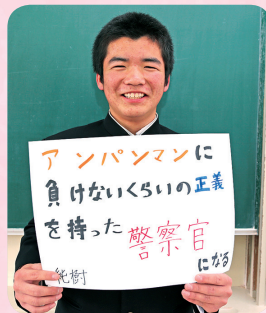 アンパンマンに
負けないくらいの正義
を持った警察官
になる
純樹